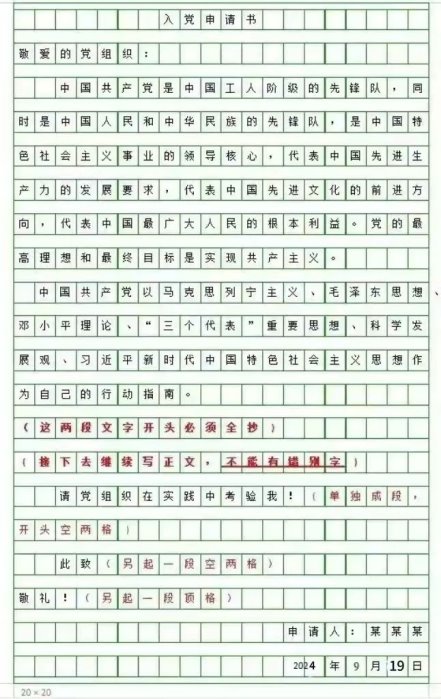 入党申请书
敬爱的党组织：
中国共产党是中国工人阶级的先锋队，同
时是中国人民和中华民族的先锋队，是中国特
色社会主义事业的领导核心，代表中国先进生
产力的发展要求，代表中国先进文化的前进方
向，代表中国最广大人民的根本利益。党的最
高理想和最终目标是实现共产主义。
中国共产党以马克思列宁主义、毛泽东思想、
邓小平理论、“三个代表”重要思想、科学发
展观、习近平新时代中国特色社会主义思想作
为自己的行动指南。
（这两段文字开头必须全抄）
（接下去继续写正文，不能有错别字）
请党组织在实践中考验我！（单独成段，
开头空两格）
此致（另起一段空两格）
敬礼！（另起一段顶格）
申请人：某某某
2024年9月19日
20×20